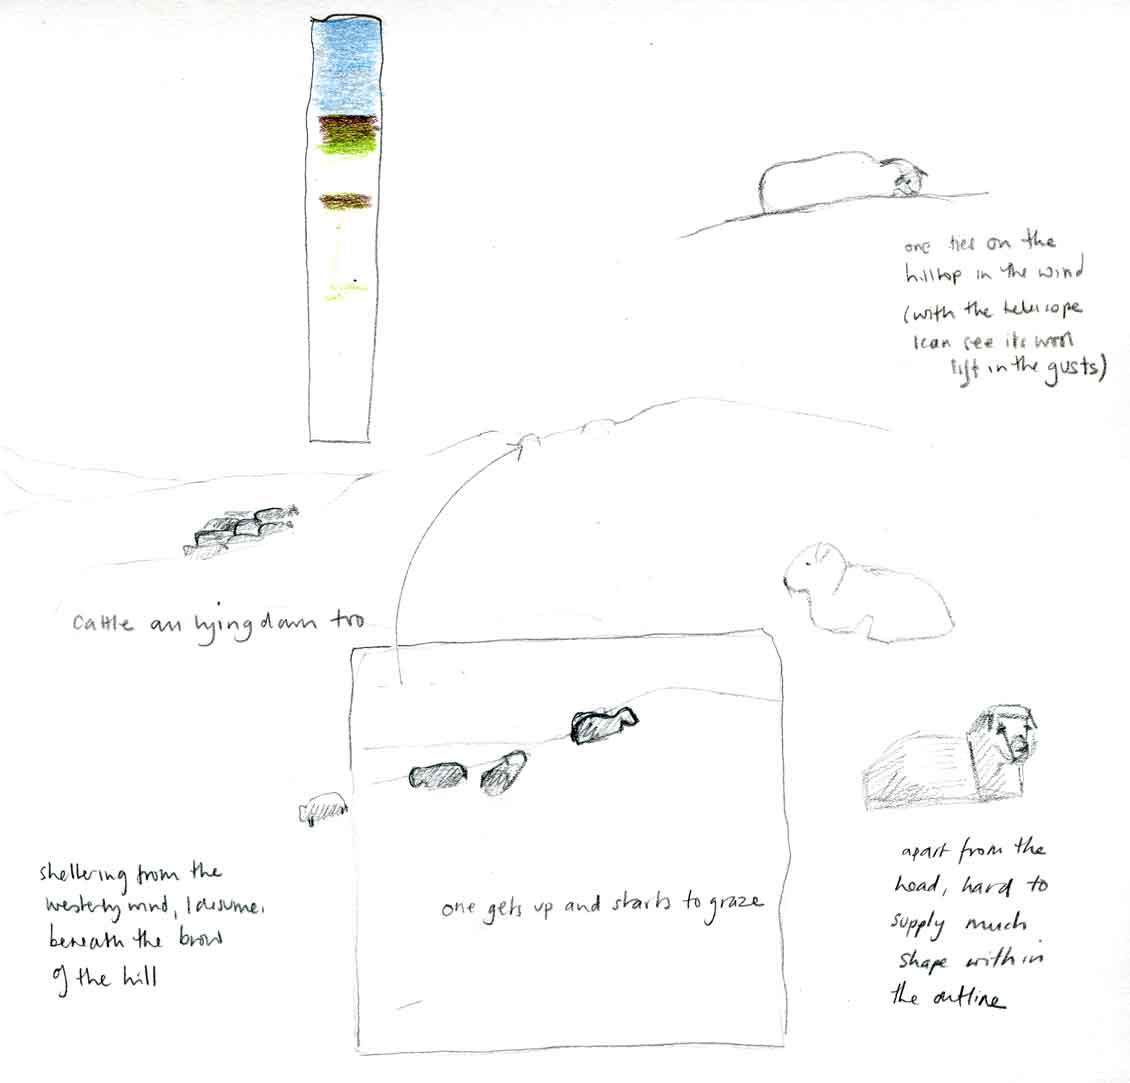 one lies on the
hilltop in the wind
(with the telescope
I can see its wool
lift in the gusts)
cattle all lying down too
sheltering from the
westerly wind, I assume,
beneath the brow
of the hill
one gets up and starts to graze
apart from the
head, hard to
supply much
shape within
the outline